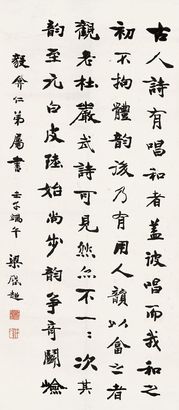 古人詩有唱和者蓋彼唱而我和之
初不拘體韻後乃有用人韻以畣之者
觀老杜嚴武詩可見然亦不一一次其
韻至元白皮陸始尚步韻爭奇鬪險
毅弇仁弟屬書 壬子端午 梁啟超